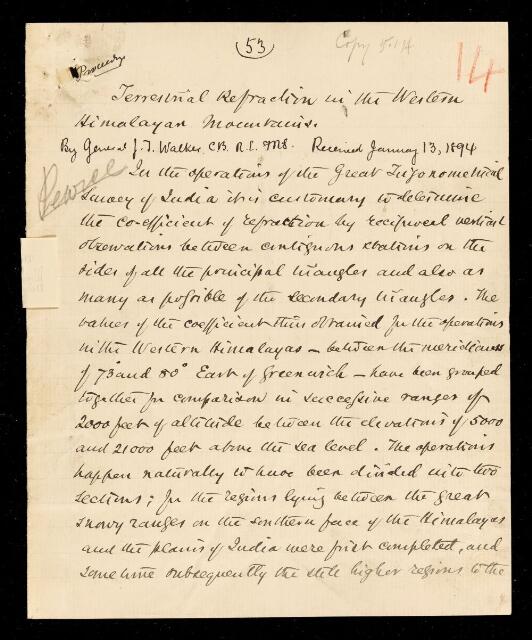 (53)
Copy 5.1.14
14
Terrestrial Refraction in the Western
Himalayan Mountains.
By General J. T. Walker, C.B. R.E. FRS. Received January 13, 1894
In the operations of the Great Trigonometrical
Survey of India it is customary to determine
the co-efficient of refraction by reciprocal vertical
observations between contiguous stations on the
sides of all the principal triangles and also as
many as possible of the secondary triangles. The
values of the coefficient thus obtained for the operations
in the Western Himalayas – between the meridians
of 73° and 80° East of Greenwich – have been grouped
together for comparison in successive ranges of
2000 feet of altitude between the elevations of 5000
and 21000 feet above the sea level. The operations
happen naturally to have been divided into two
sections; for the regions lying between the great
snowy ranges on the southern face of the Himalayas
and the plains of India were first completed, and
some time subsequently the still higher regions to the